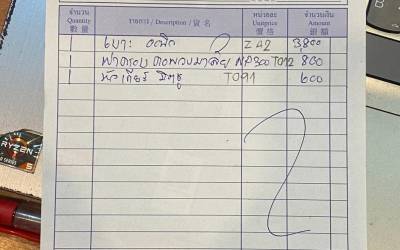 จำนวน รายการ / Description / 貨名 หน่วยละ จำนวนเงิน
Quantity Unitprice Amount
數量 價格 銀額
1 เบาะ Z A2 3,800
1 ฝาครอบ คอพวงมาลัย NP300 T092 800
1 หัวเกียร์ มิตซู T091 600
RYZEN
5